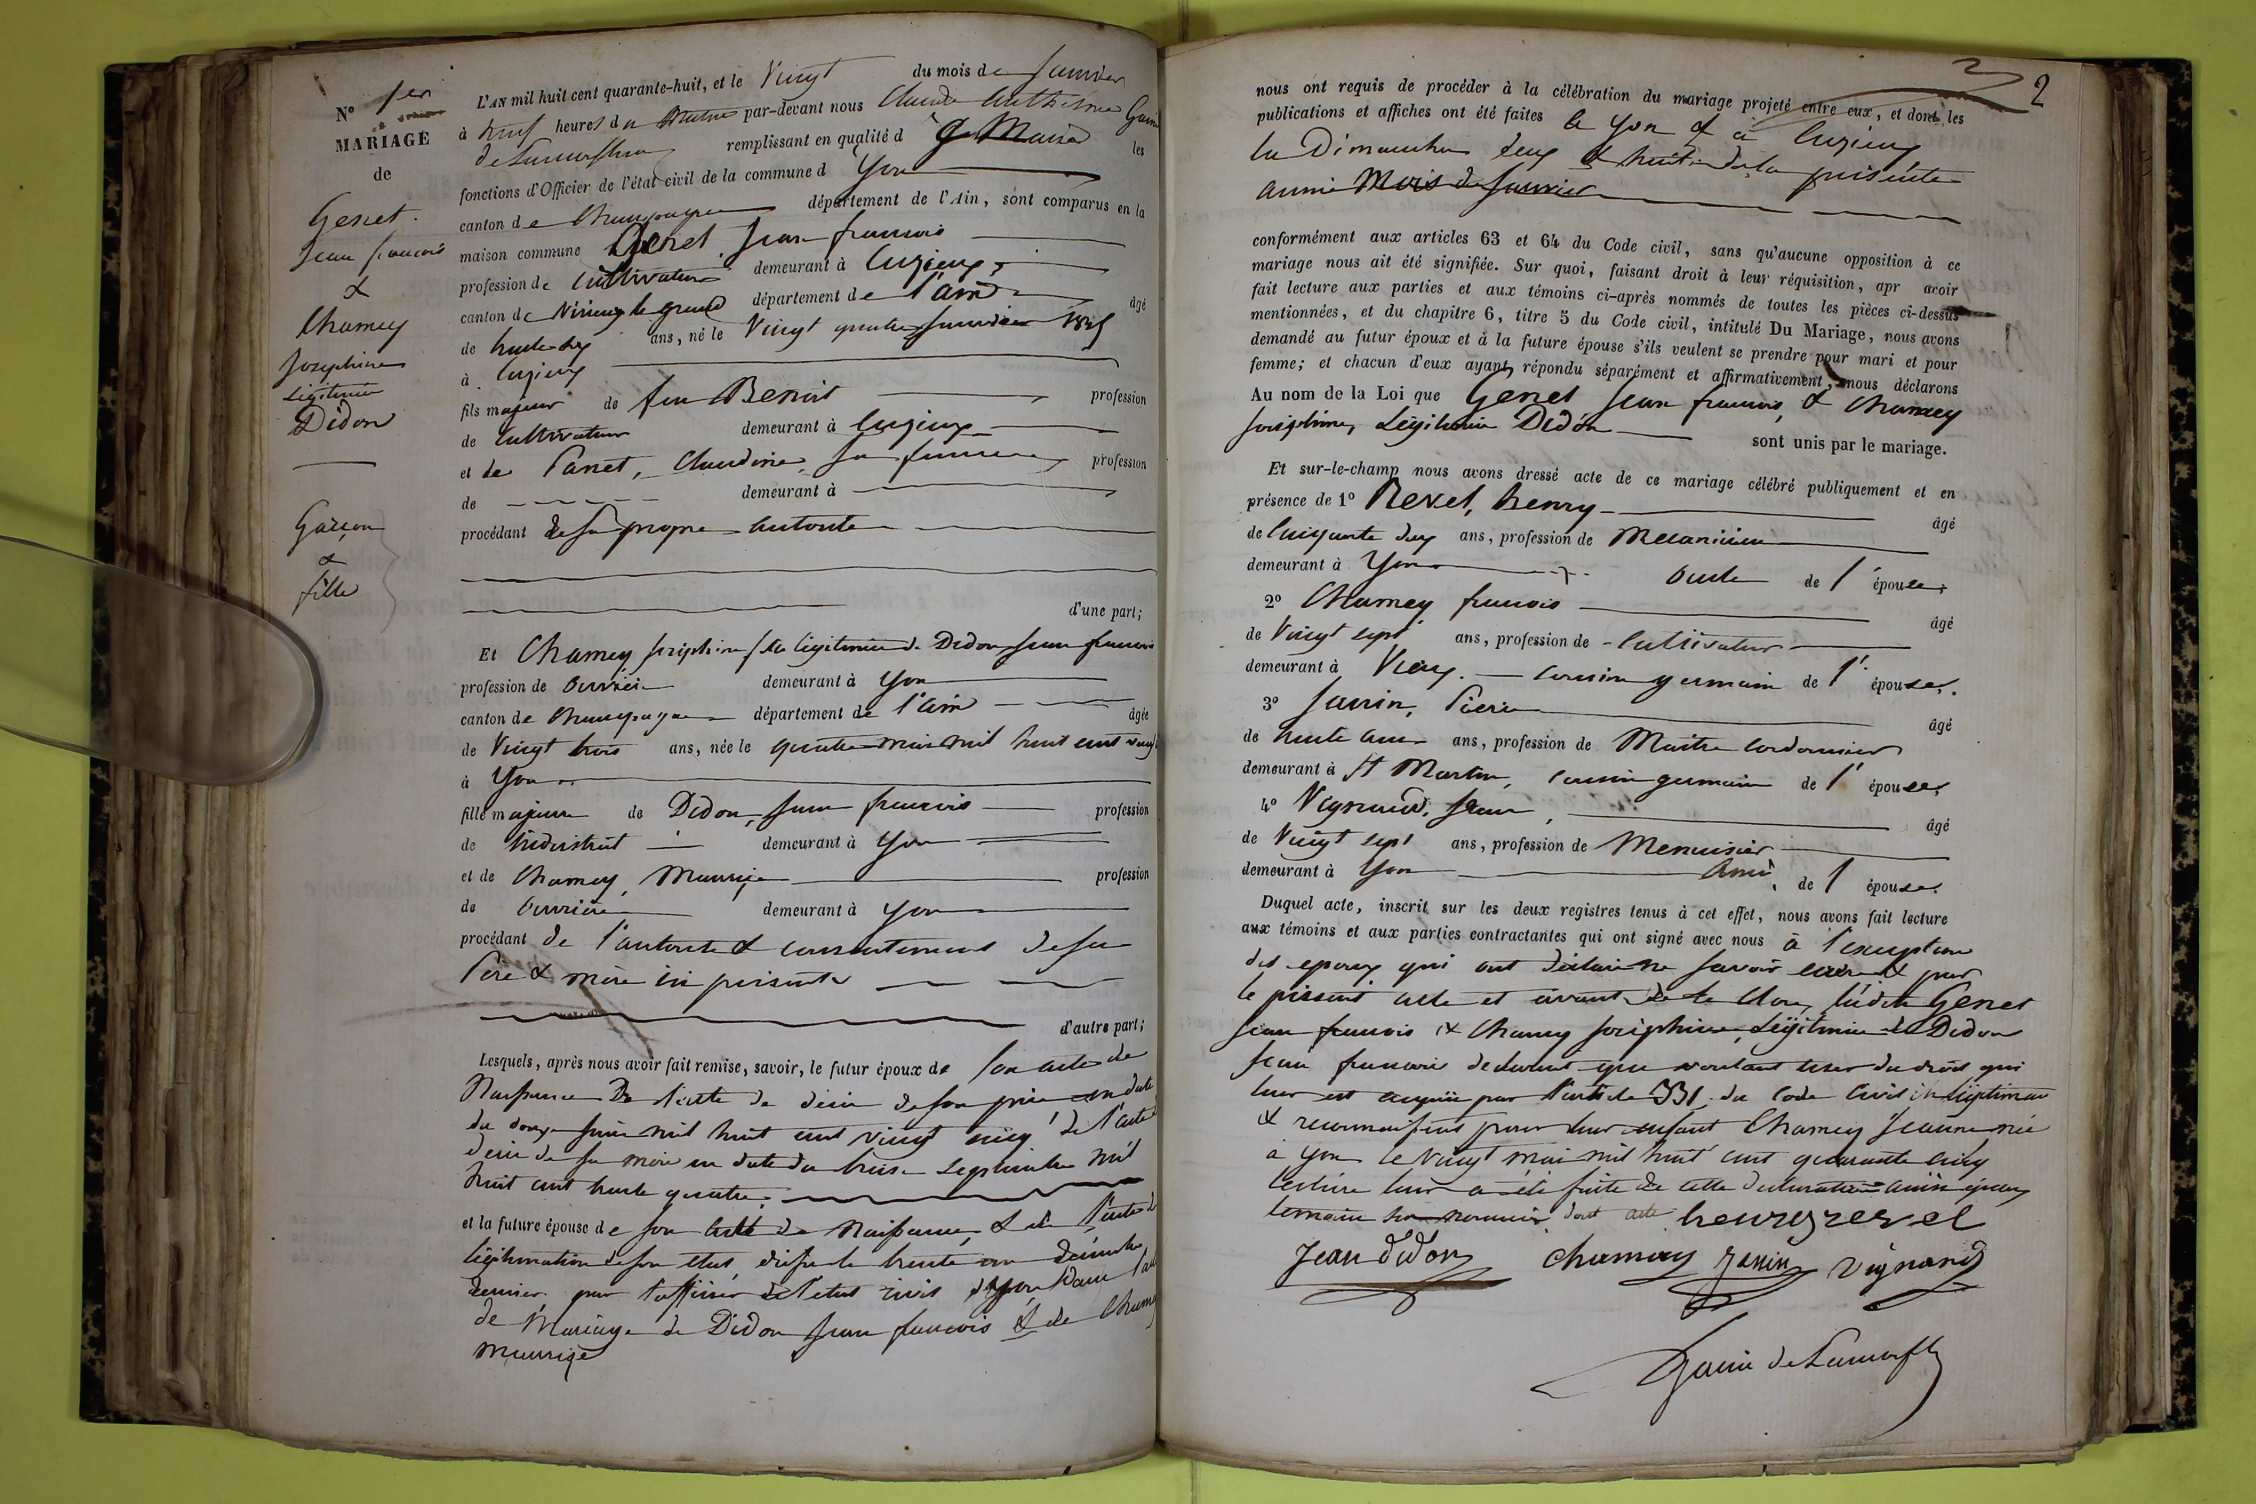 N° 1er
MARIAGE
de
Genet
Jean francois
&
Chamey
Josephine
Légitimée
Didon
Garçon
&
fille
L'AN mil huit cent quarante-huit, et le Vingt du mois de Janvier
à neuf heures du matin par-devant nous Claude Anthelme
remplissant en qualité de Maire les
fonctions d'Officier de l'état civil de la commune d'Yon
canton de Champagne département de l'Ain, sont comparus en la
maison commune Genet Jean francois
profession de Cultivateur demeurant à Luzieux
canton de Virieu le grand département de l'ain âgé
de ans, né le Vingt quatre Janvier
à Luzieux
fils majeur de feu Benoit profession
de Cultivateur demeurant à Luzieux
et de Panet, Claudine, sa femme profession
de demeurant à
procédant de sa propre autorité
d'une part;
Et Chamey Josephine légitimée de Didon Jean francois
profession de ouvrière demeurant à Yon
canton de Champagne département de l'ain âgée
de Vingt trois ans, née le quatre mai mil huit cent vingt
à Yon
fille majeure de Didon, Jean francois profession
de demeurant à Yon
et de Chamey, profession
de Ouvrière demeurant à Yon
procédant de l'autorité & consentement de ses
Père & mère ici présents
d'autre part;
Lesquels, après nous avoir fait remise, savoir, le futur époux de son acte de
Naissance De l'acte de décès de son père en date
du douze Juin mil huit cent vingt cinq de l'acte
décès de sa mère en date du treize Septembre mil
huit cent trente quatre
et la future épouse de son acte de Naissance & de l'acte de
légitimation de son état le trente un décembre
dernier par l'officier de l'état civil d'Yon dans l'acte
de Mariage de Didon Jean francois & de Chamey
2
nous ont requis de procéder à la célébration du mariage projeté entre eux, et dont les
publications et affiches ont été faites à Yon & à Luzieux
les Dimanches deux & huit de la présente
année Mois de Janvier
conformément aux articles 63 et 64 du Code civil, sans qu'aucune opposition à ce
mariage nous ait été signifiée. Sur quoi, faisant droit à leur réquisition, apr avoir
fait lecture aux parties et aux témoins ci-après nommés de toutes les pièces ci-dessus
mentionnées, et du chapitre 6, titre 5 du Code civil, intitulé Du Mariage, nous avons
demandé au futur époux et à la future épouse s'ils veulent se prendre pour mari et pour
femme; et chacun d'eux ayant répondu séparément et affirmativement, nous déclarons
Au nom de la Loi que Genet Jean francois & Chamey
Josephine, Légitimée Didon sont unis par le mariage.
Et sur-le-champ nous avons dressé acte de ce mariage célébré publiquement et en
présence de 1° Revel, henry âgé
de Cinquante deux ans, profession de Mecanicien
demeurant à Yon Oncle de l'épouse;
2° Chamey francois âgé
de Vingt sept ans, profession de Cultivateur
demeurant à Vieu. cousin germain de l'épouse.
3° Janin, Pierre âgé
de ans, profession de Maitre cordonnier
demeurant à St Martin, cousin germain de l'épouse,
4° Vignand, Jean, âgé
de Vingt sept ans, profession de Menuisier
demeurant à Yon Ami, de l'épouse.
Duquel acte, inscrit sur les deux registres tenus à cet effet, nous avons fait lecture
aux témoins et aux parties contractantes qui ont signé avec nous à l'exception
des epoux qui ont déclaré ne savoir ecrire & par
le présent acte et avant de le Clore, lesdits Genet
Jean francois & Chamey Josephine, Légitimée de Didon
Jean francois declarent que voulant user du droit qui
leur est acquis par l'article 331 du Code Civil légitimer
& reconnaissent pour leur enfant Chamey Jeanne née
à Yon le Vingt mai mil huit cent quarante cinq
lecture leur a été faite de cette declaration ainsi qu'aux
temoins dont acte henry revel
Jean didon Chamey Janin vignand